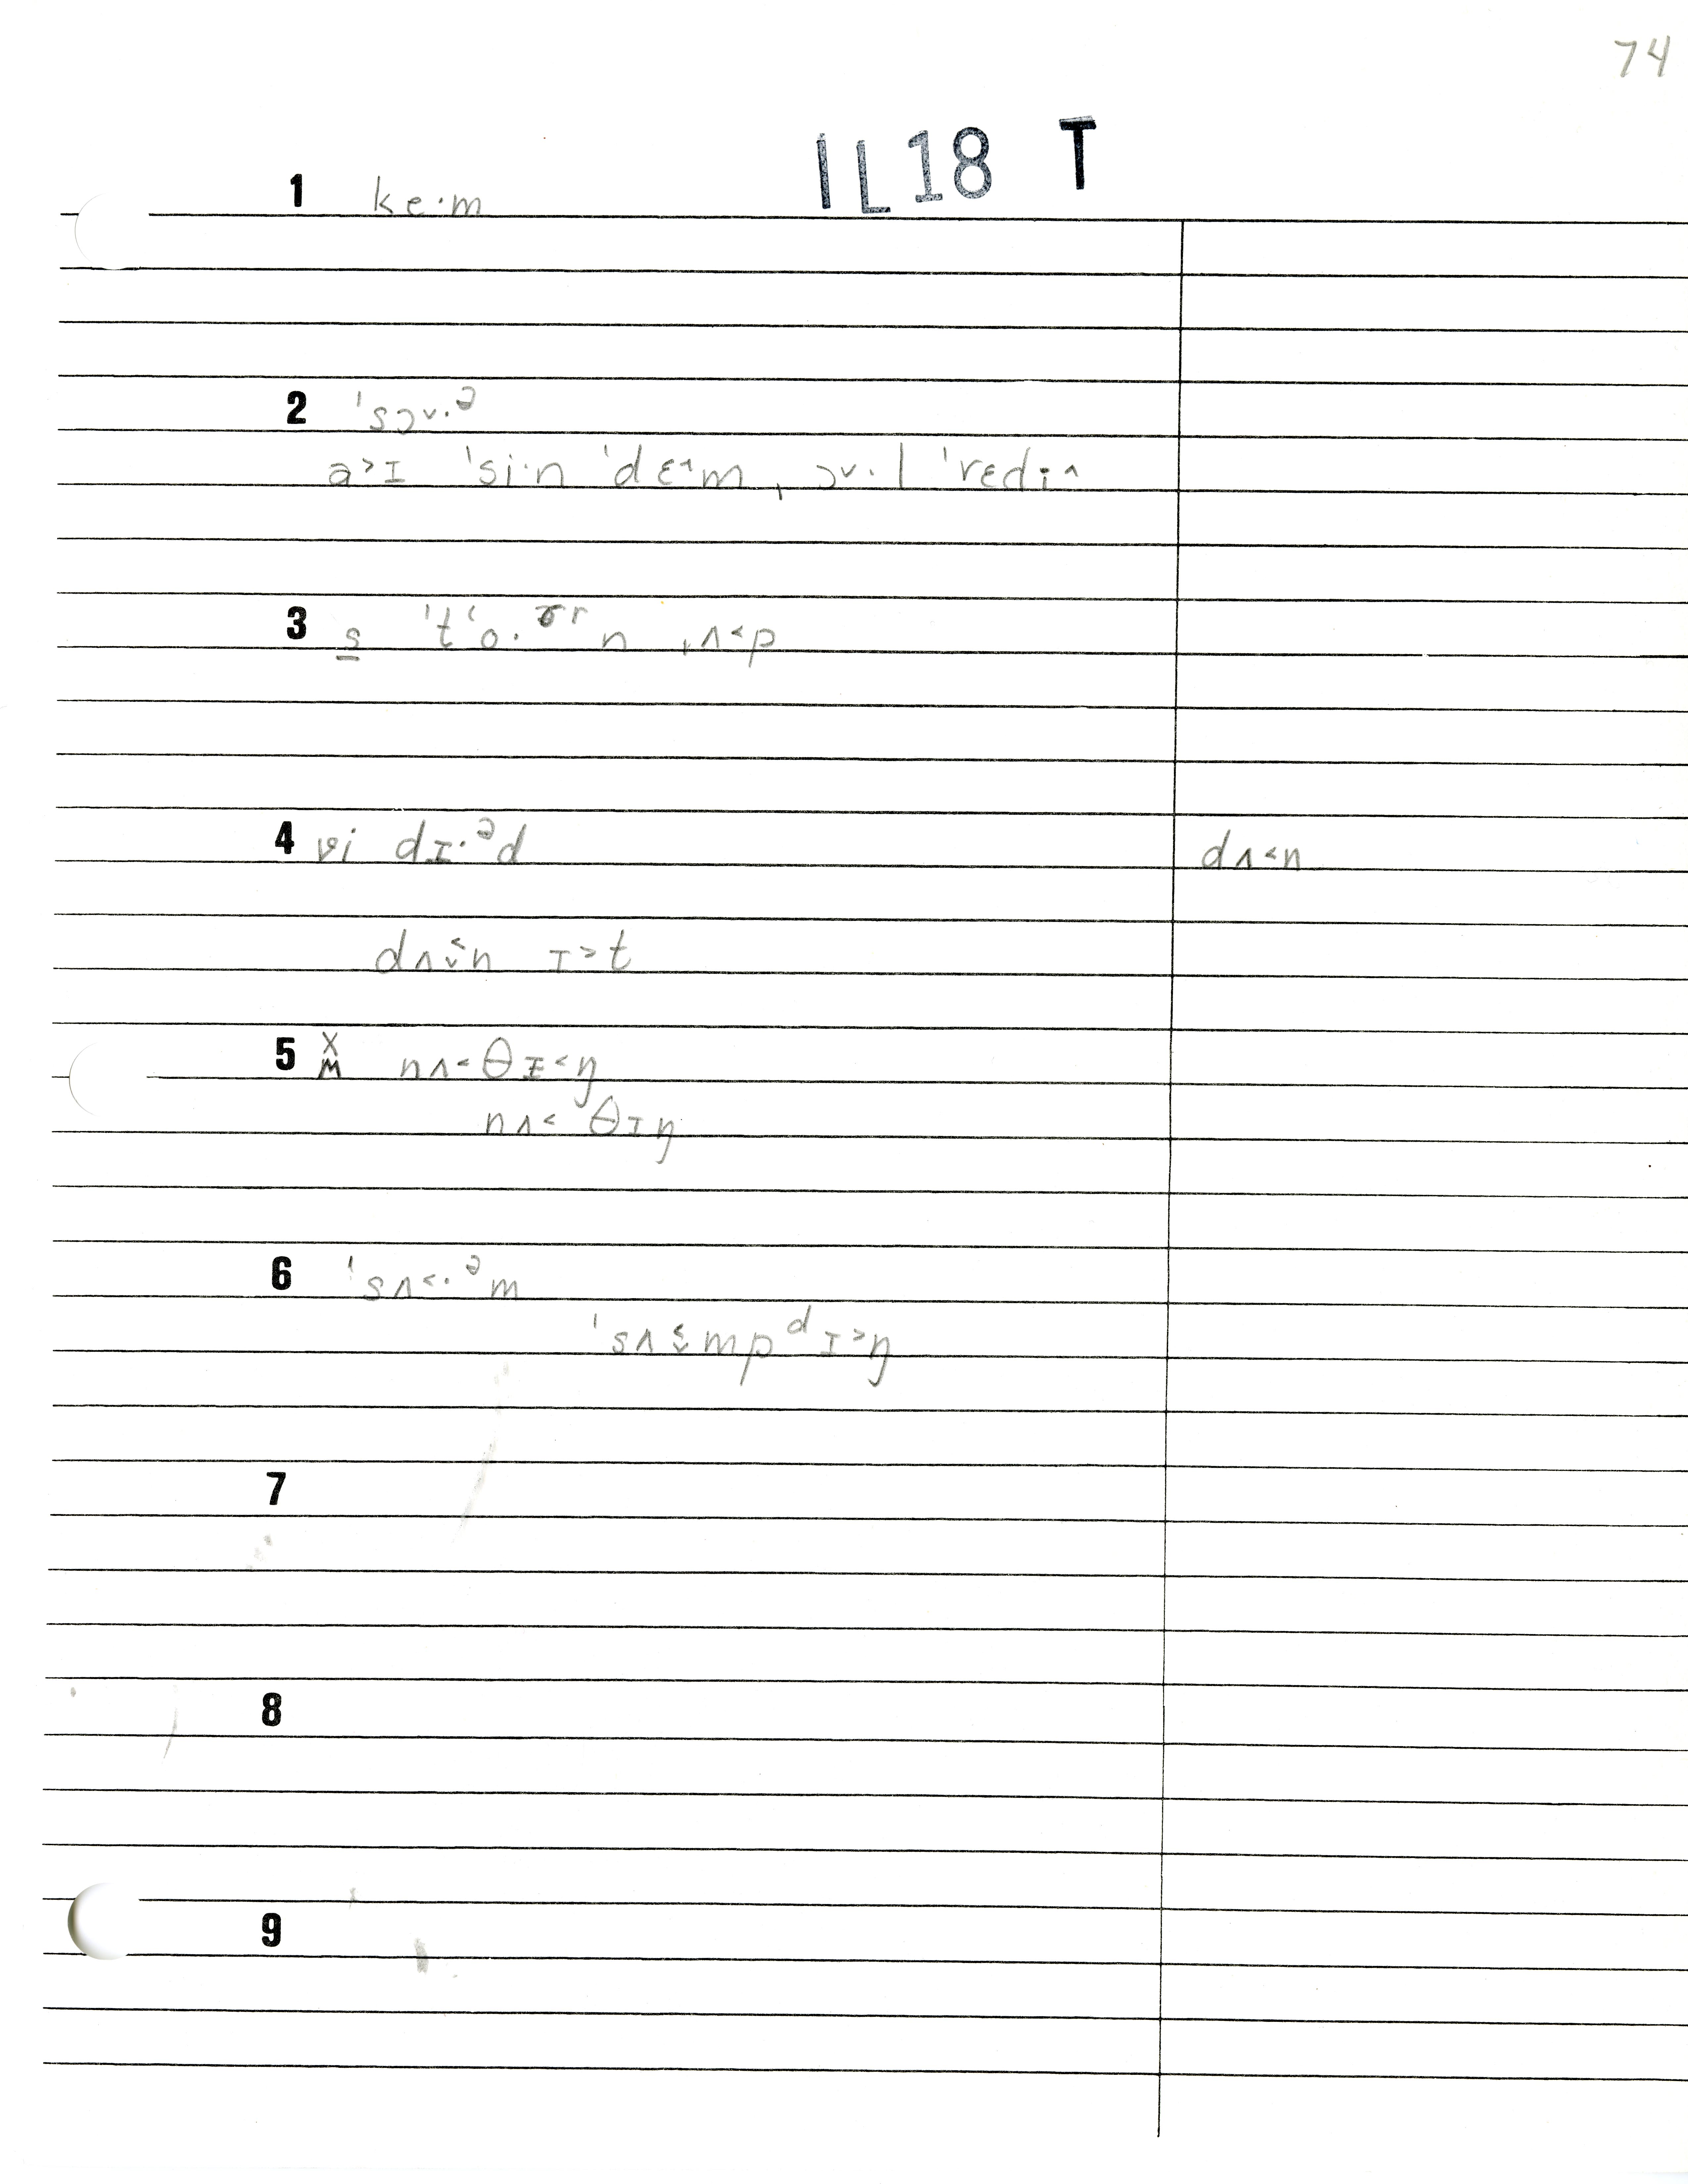 74
IL18 T
1 ke·m
2 ˈsɔ˅·ᵊ
a˃ɪ ˈsi·n ˈdɛ˄m, ɔ˅·l ˈrɛdi˄
3 s̲ ˈtʻo·ᵊʳn ˌʌ˂p
4 vi dɪ·ᵊd dʌ˂n
dʌ˂˅n ɪ˃t
5 X M nʌ˂θɪ˂ŋ
nʌ˂θɪŋ
6 ˈsʌ˂·ᵊm
ˈsʌ˂˅mpᵈɪ˃ŋ
7
8
9